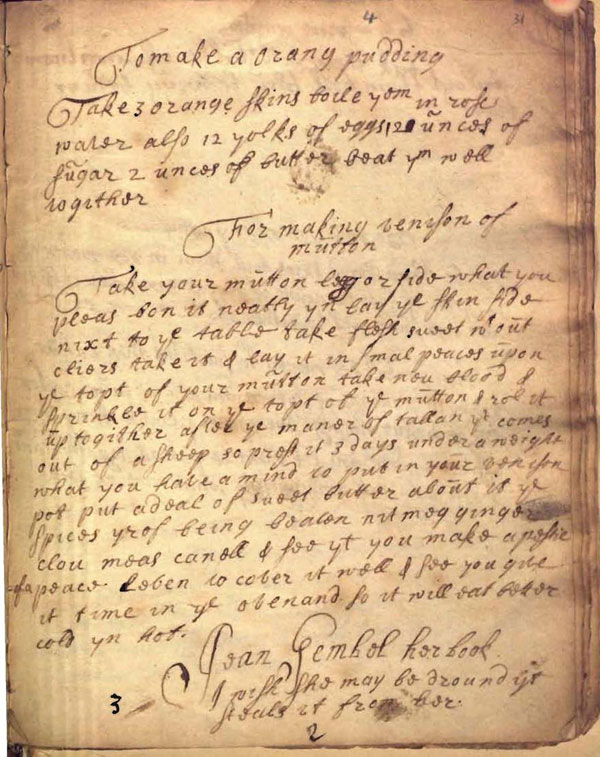 4
31
To make a orang pudding
Take 3 orange skins boile yem in rose
water also 12 yolks of eggs 12 unces of
sugar 2 unces of butter beat ym well
togither
For making venison of
mutton
Take your mutton leg or side what you
pleas bon it neatly yn lay ye skin side
nixt to ye table take flesh sweet wout
cliers take it & lay it in smal peaces upon
ye topt of your mutton take neu blood &
sprinkle it on ye topt of ye mutton & rol it
up togither after ye maner of tallan yt comes
out of a sheep so prest it 3 days under a weight
what you have a mind to put in your venison
pot put a deal of sweet butter about it ye
spices yrof being beaten nitmeg ginger
clou meas canell & see yt you make a
of a peace leben to cover it well & see you give
it time in ye oven and so it will eat better
cold yn hot.
Jean Gembel her book
I wish she may be dround yt
steals it from her.
3
2